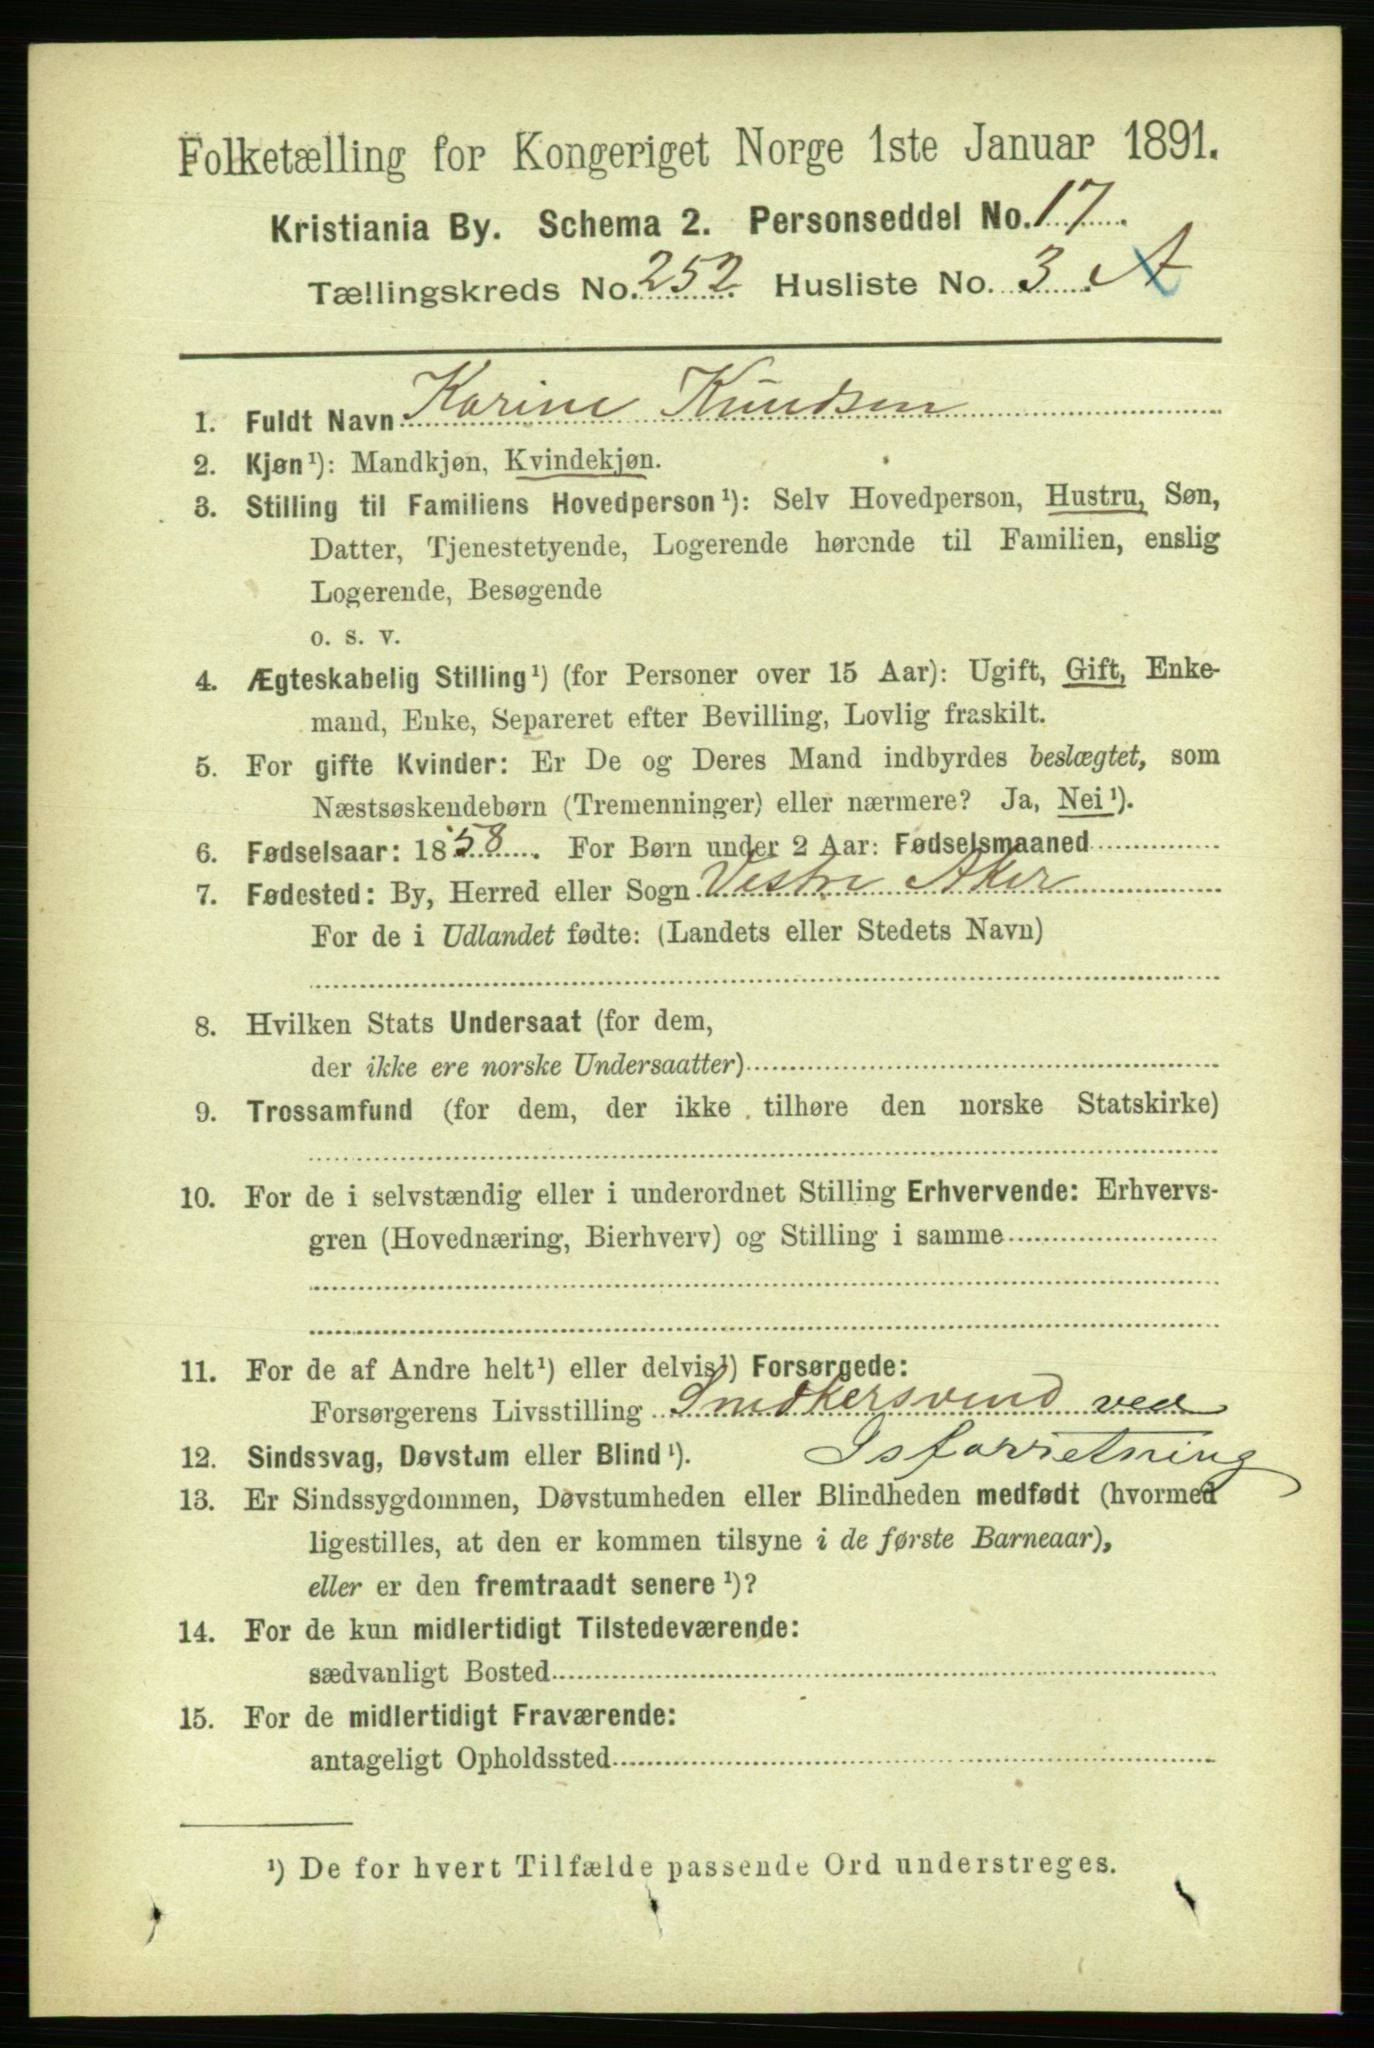 Folketælling for Kongeriget Norge 1ste Januar 1891.
Kristiania By. Schema 2. Personseddel No. 17.
Tællingskreds No. 252. Husliste No. 3. A
1. Fuldt Navn Karine Knudsen
2. Kjøn¹): Mandkjøn, Kvindekjøn.
3. Stilling til Familiens Hovedperson¹): Selv Hovedperson, Hustru, Søn,
Datter, Tjenestetyende, Logerende hørende til Familien, enslig
Logerende, Besøgende
o. s. v.
4. Ægteskabelig Stilling¹) (for Personer over 15 Aar): Ugift, Gift, Enke-
mand, Enke, Separeret efter Bevilling, Lovlig fraskilt.
5. For gifte Kvinder: Er De og Deres Mand indbyrdes beslægtet, som
Næstsøskendebørn (Tremenninger) eller nærmere? Ja, Nei¹).
6. Fødselsaar: 1858. For Børn under 2 Aar: Fødselsmaaned
7. Fødested: By, Herred eller Sogn Vestre Aker
For de i Udlandet fødte: (Landets eller Stedets Navn)
8. Hvilken Stats Undersaat (for dem,
der ikke ere norske Undersaatter)
9. Trossamfund (for dem, der ikke tilhøre den norske Statskirke)
10. For de i selvstændig eller i underordnet Stilling Erhvervende: Erhvervs-
gren (Hovednæring, Bierhverv) og Stilling i samme
11. For de af Andre helt¹) eller delvis¹) Forsørgede:
Forsørgerens Livsstilling Snedkersvend ved
12. Sindssvag, Døvstum eller Blind¹). Isforretning
13. Er Sindssygdommen, Døvstumheden eller Blindheden medfødt (hvormed
ligestilles, at den er kommen tilsyne i de første Barneaar),
eller er den fremtraadt senere¹)?
14. For de kun midlertidigt Tilstedeværende:
sædvanligt Bosted
15. For de midlertidigt Fraværende:
antageligt Opholdssted
¹) De for hvert Tilfælde passende Ord understreges.